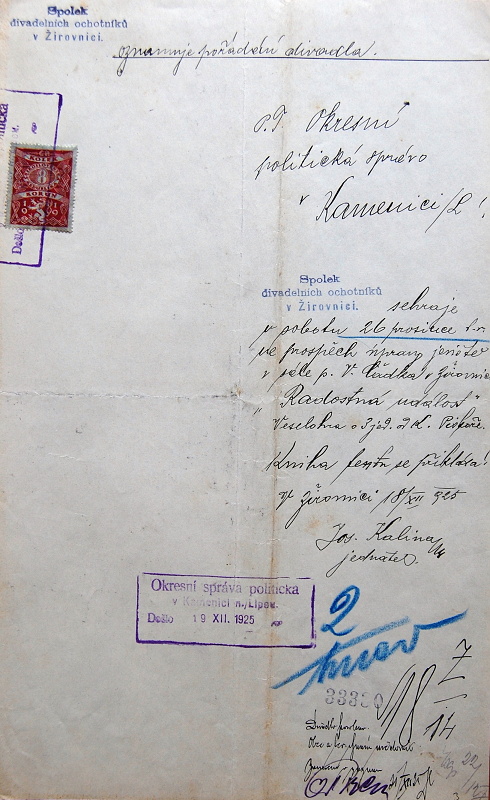 Spolek
divadelních ochotníků
v Žirovnici.
oznamuje pořádání divadla.
P.T. Okresní
politická správo
v Kamenici /L!
8
KOLEK
KORUN
Došlo
Spolek
divadelních ochotníků
v Žirovnici.
sehraje
v sobotu 26 prosince t.r.
ve prospěch úpravy jeviště
v sále p. V. Čádka v Žirovnici
"Radostná událost"
Veselohra o 3 jed. od K.
Kniha se přikládá!
V Žirovnici 18/XII 925
Jos. Kalina
jednatel.
Okresní správa politická
v Kamenici n./Lipou.
Došlo 19 XII. 1925
2
33380
18
Z
14
22